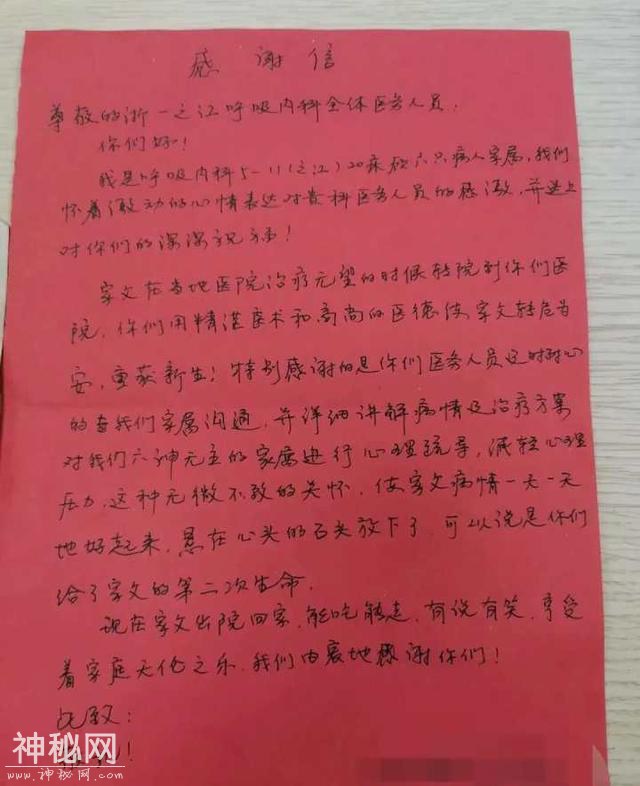 感谢信
尊敬的浙一之江呼吸内科全体医务人员.
你们好!
我是呼吸内科5-11(之江)20床 病人家属,我们
怀着激动的心情表达对贵科医务人员的感激,并送上
对你们的深深祝福!
家父在当地医院治疗无望的时候转院到你们医
院,你们用精湛医术和高尚的医德使家父转危为
安,重获新生!特别感谢的是你们医务人员及时耐心
的与我们家属沟通,并详细讲解病情及治疗方案
对我们六神无主的家属进行心理疏导,减轻心理
压力,这种无微不致的关怀,使家父病情一天一天
地好起来,悬在心头的石头放下了,可以说是你们
给了家父的第二次生命.
现在家父出院回家,能吃能走,有说有笑,享受
着家庭天伦之乐.我们由衷地感谢你们!
此致:
!
神秘网
www.神秘网.com